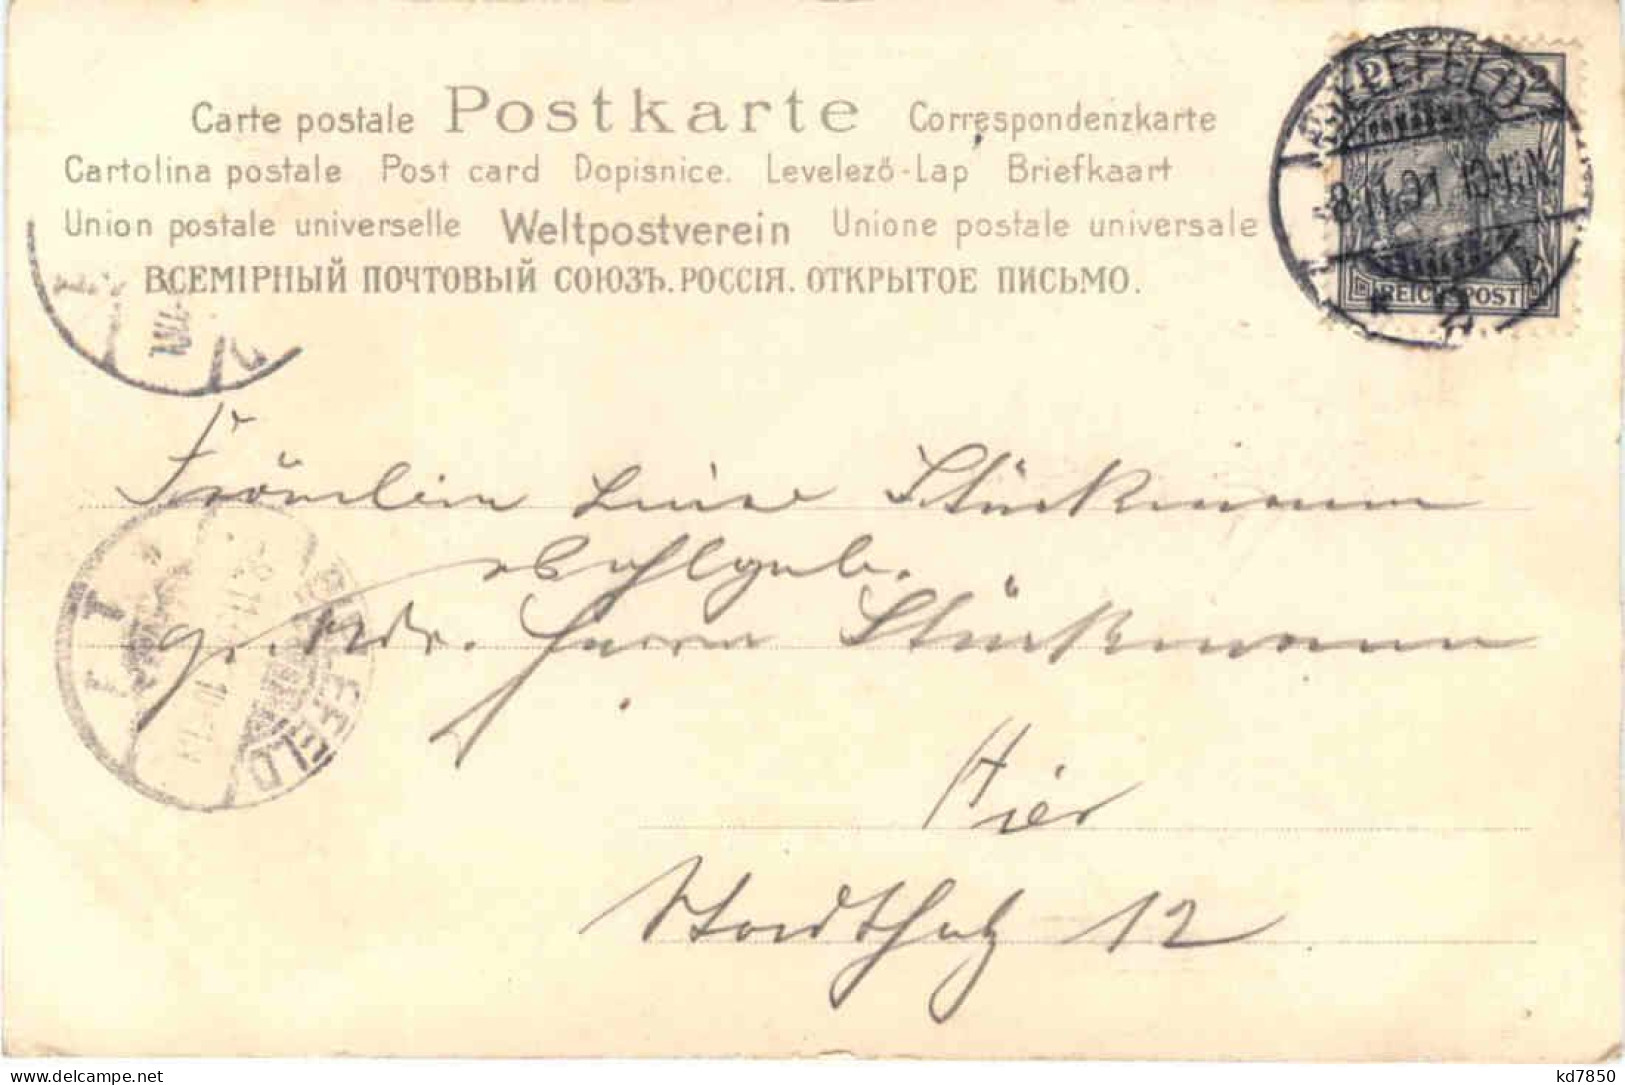 Carte postale Postkarte Correspondenzkarte
Cartolina postale Post card Dopisnice. Levelező-Lap Briefkaart
Union postale universelle Weltpostverein Unione postale universale
ВСЕМІРНЫЙ ПОЧТОВЫЙ СОЮЗЪ. РОССІЯ. ОТКРЫТОЕ ПИСЬМО.
2 2
REICHSPOST
8.11.01. 10-11.N
2
11-12N
Fräulein Luise Stürkmann
Wohlgeb.
Herrn Stürkmann
Hier
12
kd7850